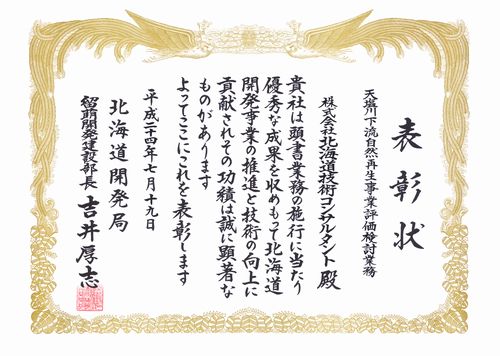 表彰状
天塩川下流自然再生事業評価検討業務
株式会社北海道技術コンサルタント 殿
貴社は頭書業務の施行に当たり
優秀な成果を収めもって北海道
開発事業の推進と技術の向上に
貢献されその功績は誠に顕著な
ものがあります
よってここにこれを表彰します
平成二十四年七月十九日
北海道開発局
留萌開発建設部長 吉井厚志